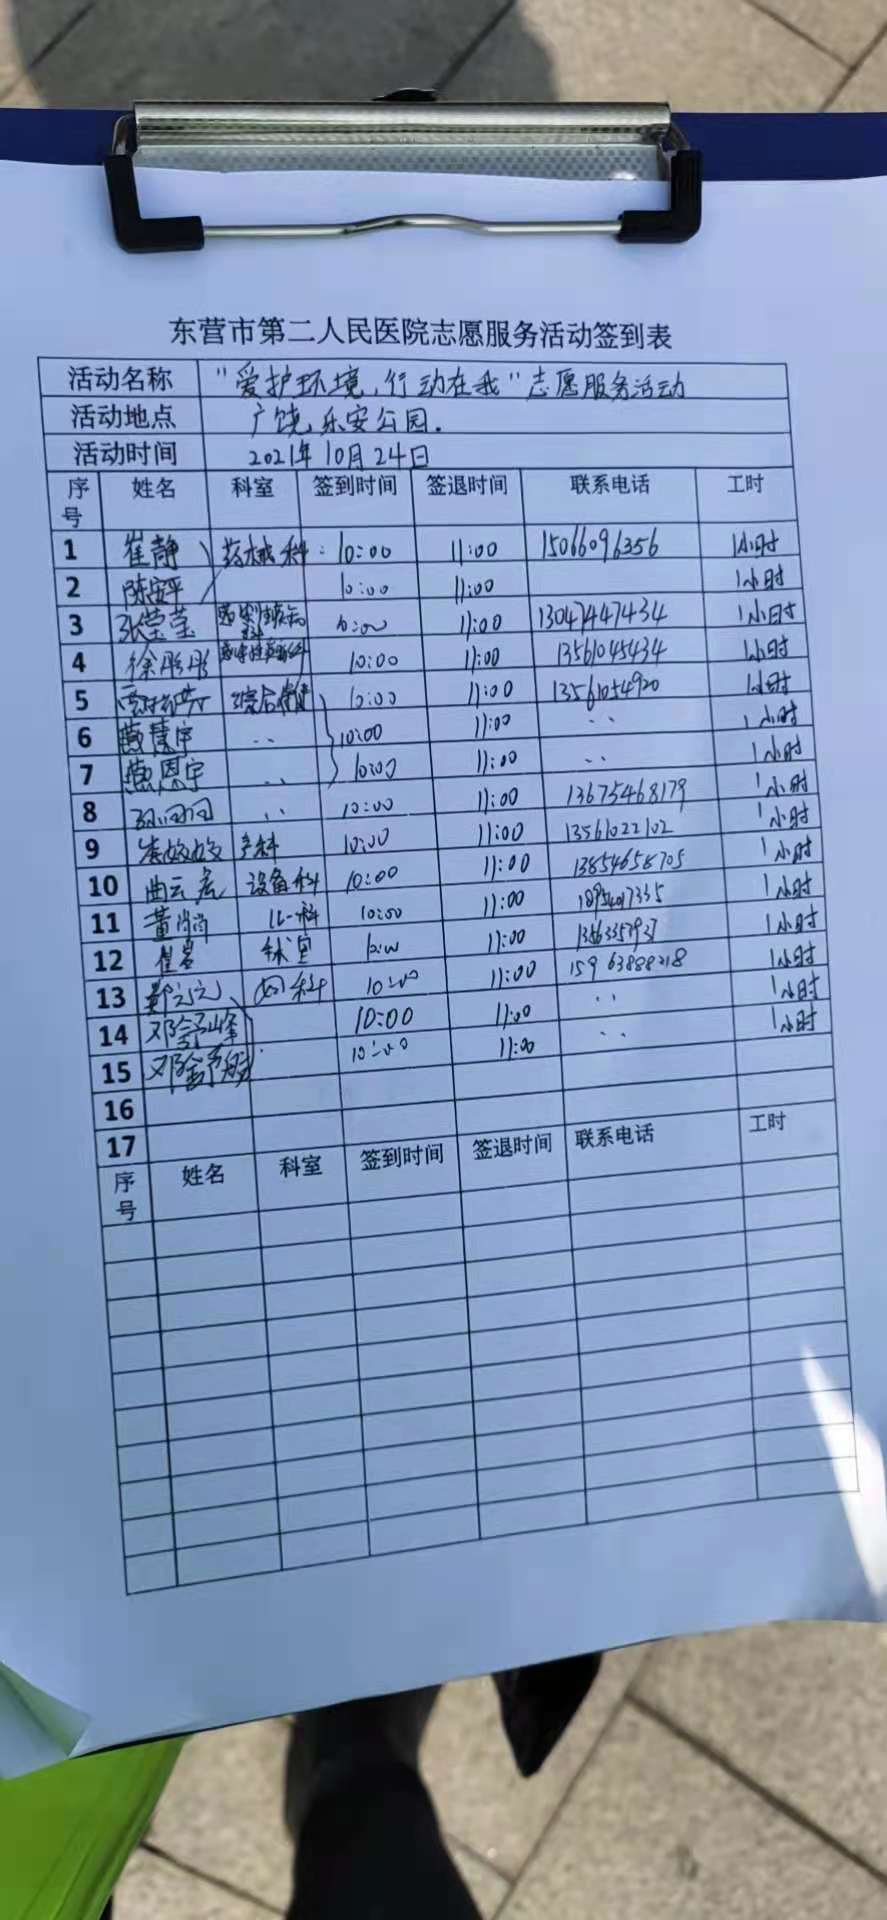 东营市第二人民医院志愿服务活动签到表
活动名称 "爱护环境,行动在我"志愿服务活动
活动地点 广饶乐安公园.
活动时间 2021年10月24日
序号 姓名 科室 签到时间 签退时间 联系电话 工时
1 崔静 药械科 10:00 11:00 15066096356 1小时
2 陈安平 10:00 11:00 1小时
3 张莹莹 10:00 11:00 13047447434 1小时
4 徐彤彤 10:00 11:00 13561045434 1小时
5 10:00 11:00 13561054920 1小时
6 燕慧宇 .. 10:00 11:00 .. 1小时
7 燕恩宇 .. 10:00 11:00 .. 1小时
8 .. 10:00 11:00 13675468179 1小时
9 产科 10:00 11:00 13561022102 1小时
10 曲云 设备科 10:00 11:00 13854658705 1小时
11 董 10:00 11:00 1小时
12 崔 10:00 11:00 1小时
13 郭元元 妇科 10:00 11:00 15963888218 1小时
14 邓 峰 10:00 11:00 .. 1小时
15 邓 10:00 11:00 .. 1小时
16
17
序号 姓名 科室 签到时间 签退时间 联系电话 工时